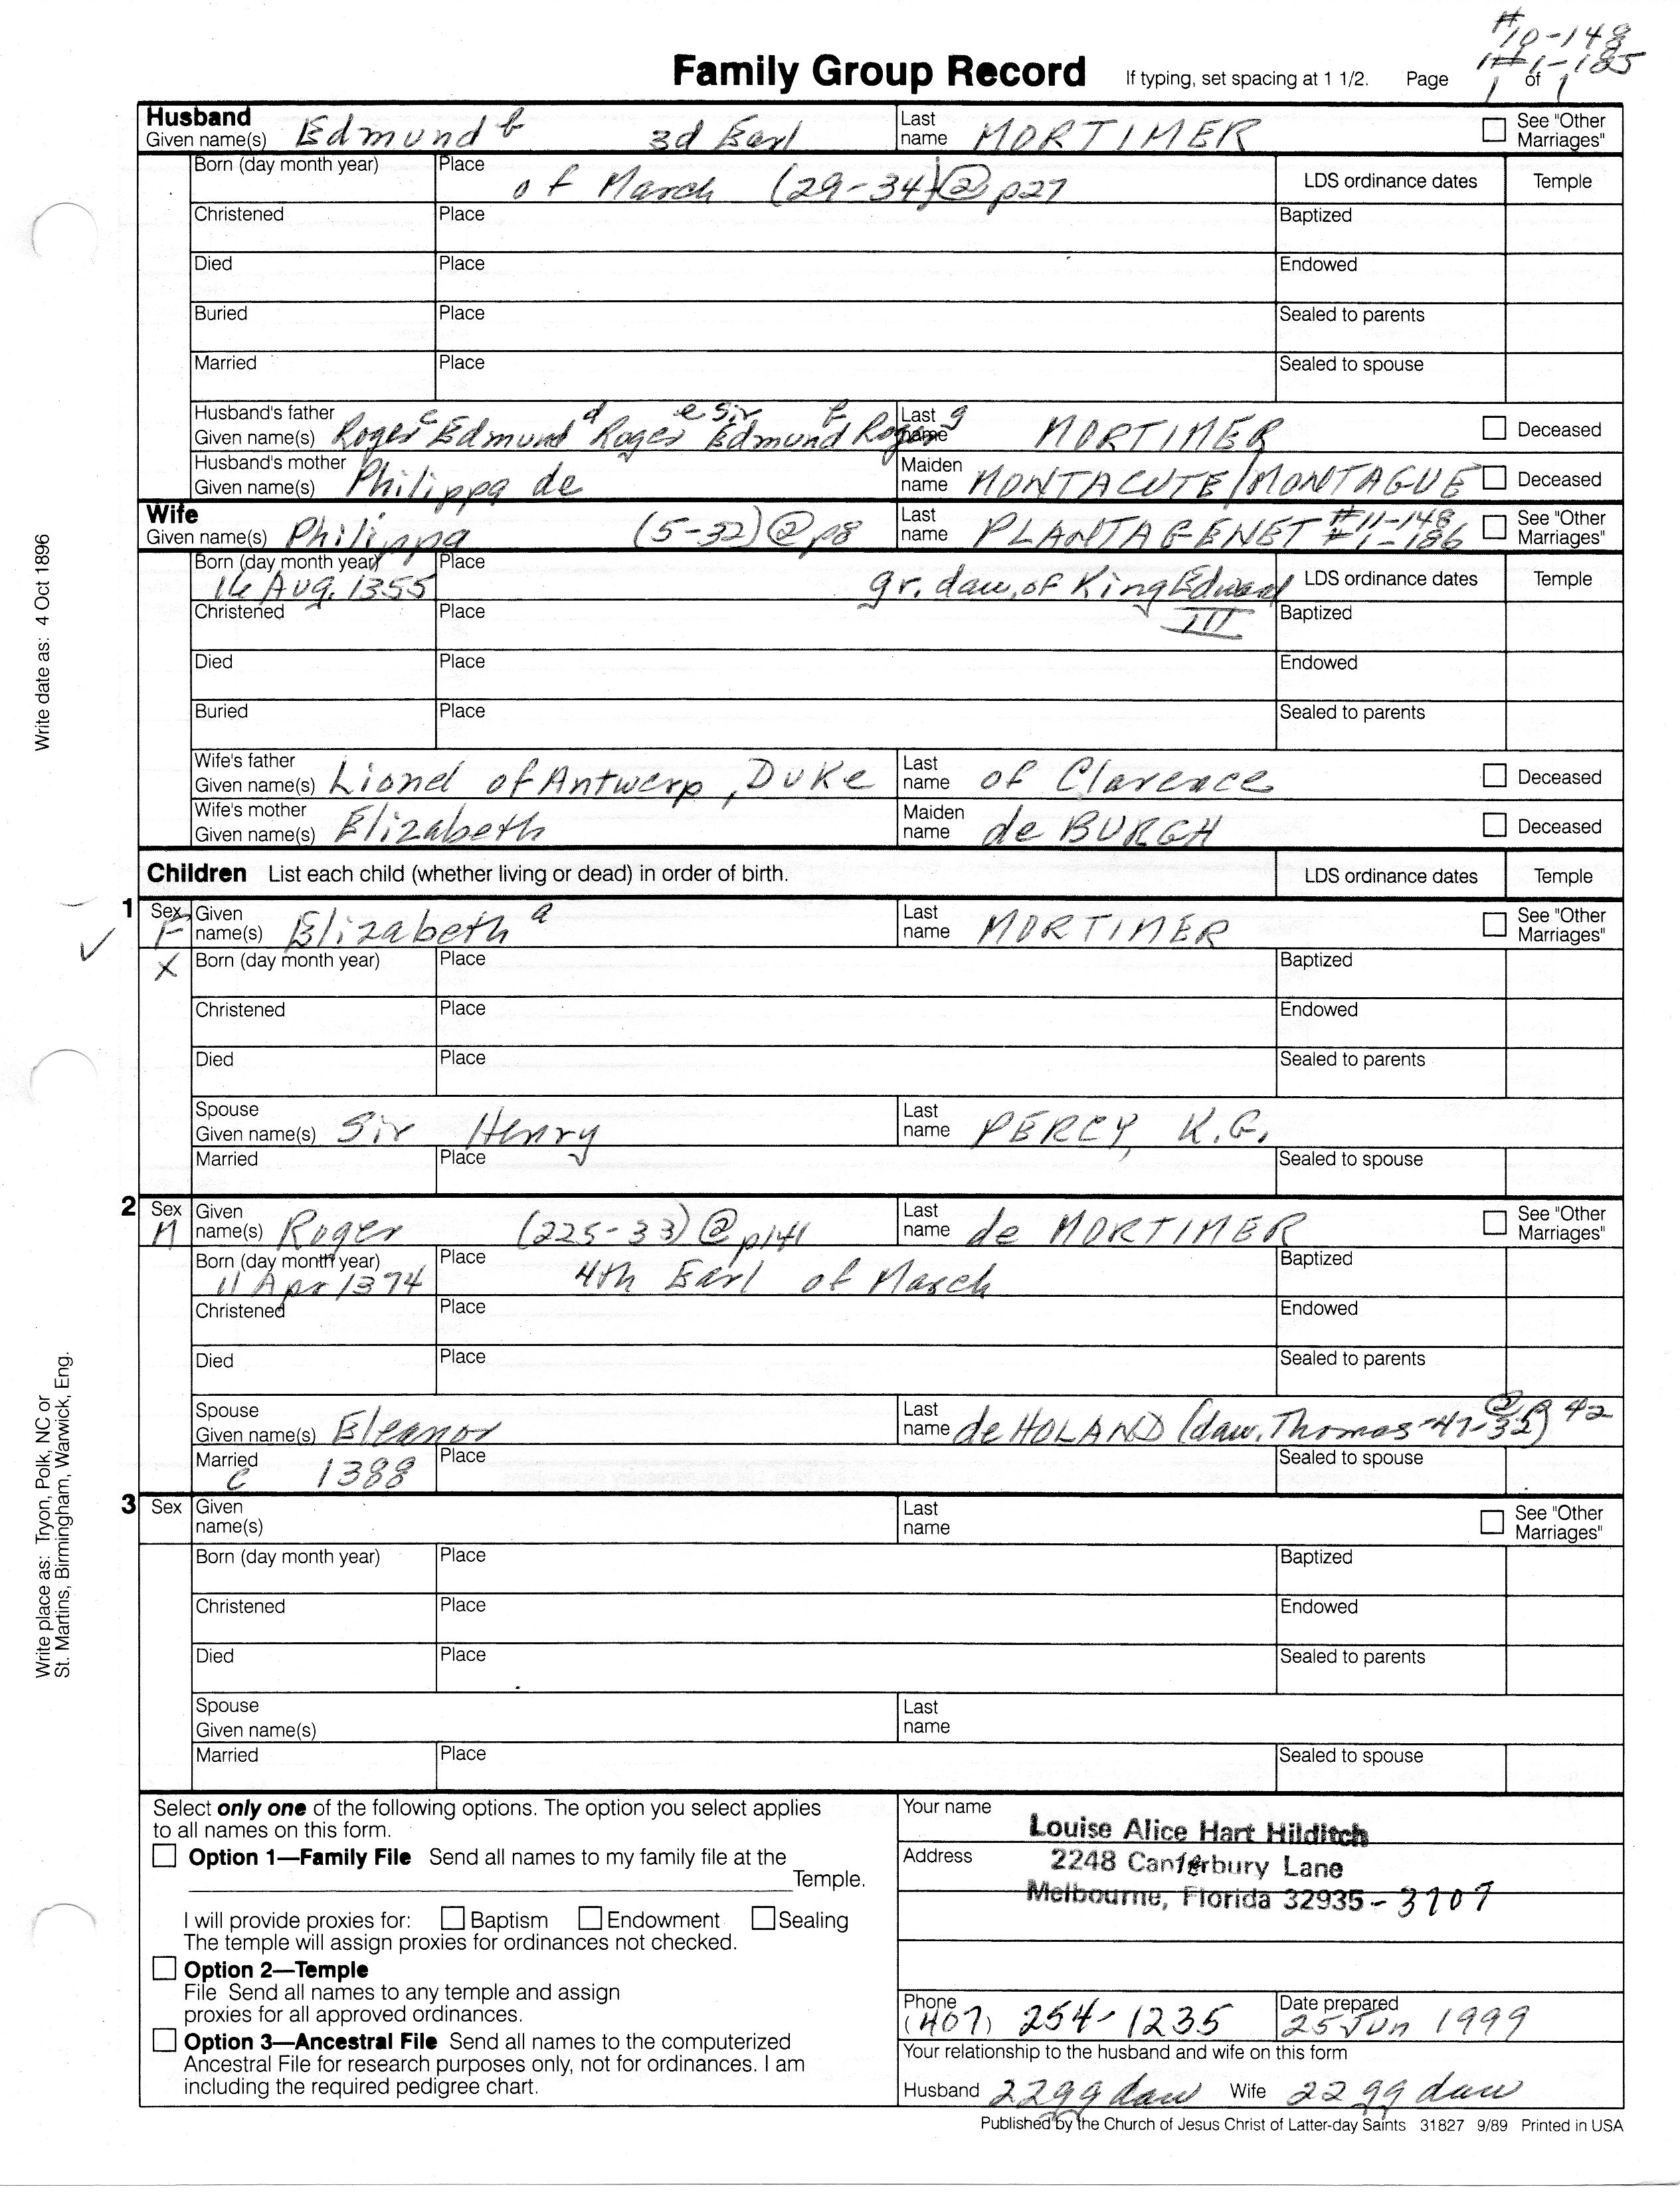 #10-148
1#1-185
Family Group Record If typing, set spacing at 1 1/2. Page 1 of 1
Husband
Given name(s) Edmund b 3d Earl Last name MORTIMER See "Other Marriages"
Born (day month year) Place of March (29-34)@p27 LDS ordinance dates Temple
Christened Place Baptized
Died Place Endowed
Buried Place Sealed to parents
Married Place Sealed to spouse
Husband's father
Given name(s) Roger c Edmund d Roger e Sir Edmund f Roger g Last name MORTIMER Deceased
Husband's mother
Given name(s) Philippa de Maiden name MONTACUTE/MONTAGUE Deceased
Wife
Given name(s) Philippa (5-32)@p8 Last name PLANTAGENET #11-148 #1-186 See "Other Marriages"
Born (day month year) 16 Aug. 1355 Place gr. daw. of King Edward III LDS ordinance dates Temple
Christened Place Baptized
Died Place Endowed
Buried Place Sealed to parents
Wife's father
Given name(s) Lionel of Antwerp, Duke Last name of Clarence Deceased
Wife's mother
Given name(s) Elizabeth Maiden name de BURGH Deceased
Children List each child (whether living or dead) in order of birth. LDS ordinance dates Temple
1 Sex F Given name(s) Elizabeth a Last name MORTIMER See "Other Marriages"
X Born (day month year) Place Baptized
Christened Place Endowed
Died Place Sealed to parents
Spouse
Given name(s) Sir Henry Last name PERCY, K.G.
Married Place Sealed to spouse
2 Sex M Given name(s) Roger (225-33)@p141 Last name de MORTIMER See "Other Marriages"
Born (day month year) 11 Apr 1374 Place 4th Earl of March Baptized
Christened Place Endowed
Died Place Sealed to parents
Spouse
Given name(s) Eleanor Last name de HOLAND (daw. Thomas-47-32) @p 42
Married c 1388 Place Sealed to spouse
3 Sex Given name(s) Last name See "Other Marriages"
Born (day month year) Place Baptized
Christened Place Endowed
Died Place Sealed to parents
Spouse
Given name(s) Last name
Married Place Sealed to spouse
Select only one of the following options. The option you select applies
to all names on this form.
Option 1—Family File Send all names to my family file at the
Temple.
I will provide proxies for: Baptism Endowment Sealing
The temple will assign proxies for ordinances not checked.
Option 2—Temple
File Send all names to any temple and assign
proxies for all approved ordinances.
Option 3—Ancestral File Send all names to the computerized
Ancestral File for research purposes only, not for ordinances. I am
including the required pedigree chart.
Your name Louise Alice Hart Hilditch
Address 2248 Canterbury Lane
Melbourne, Florida 32935-3707
Phone (407) 254-1235 Date prepared 25 Jun 1999
Your relationship to the husband and wife on this form
Husband 22gg daw Wife 22 gg daw
Published by the Church of Jesus Christ of Latter-day Saints 31827 9/89 Printed in USA
Write date as: 4 Oct 1896
Write place as: Tryon, Polk, NC or
St. Martins, Birmingham, Warwick, Eng.